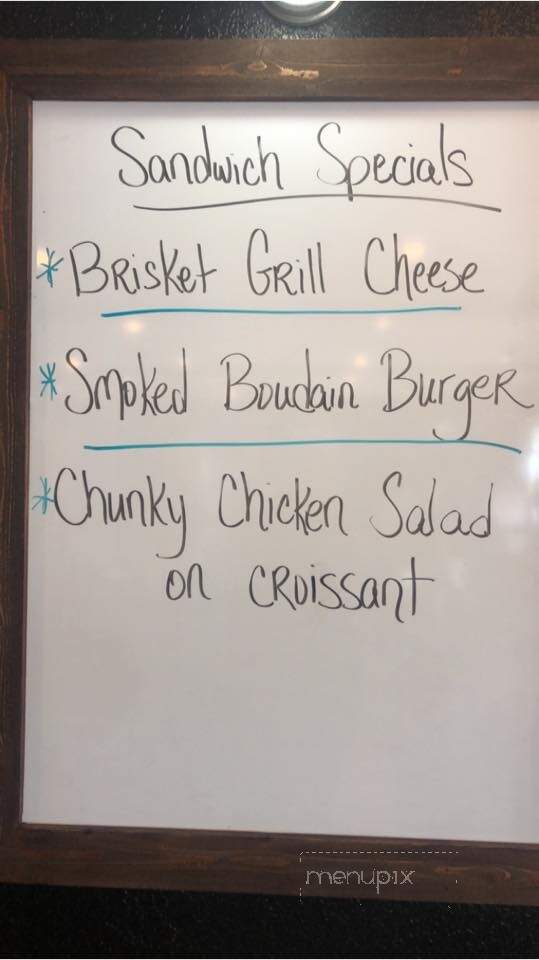 Sandwich Specials
*Brisket Grill Cheese
*Smoked Boudain Burger
*Chunky Chicken Salad
on Croissant
menupix